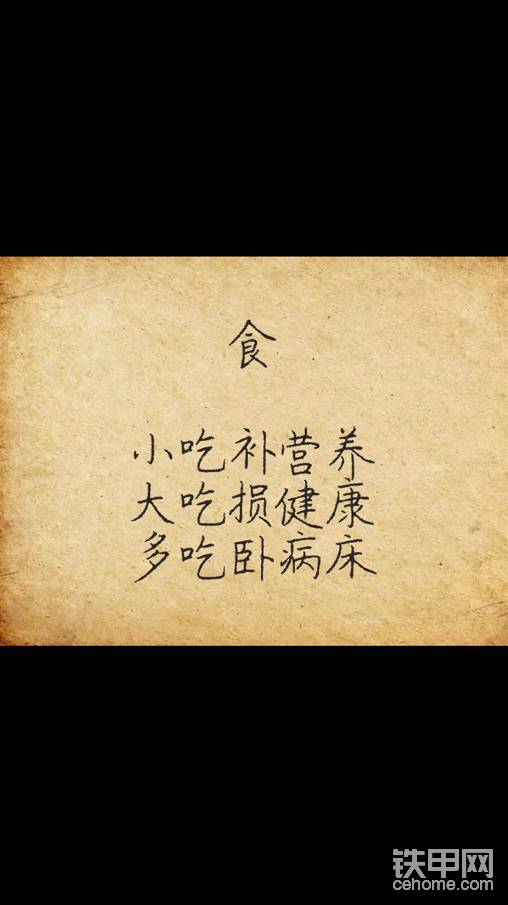 食
小吃补营养
大吃损健康
多吃卧病床
铁甲网
cehome.com